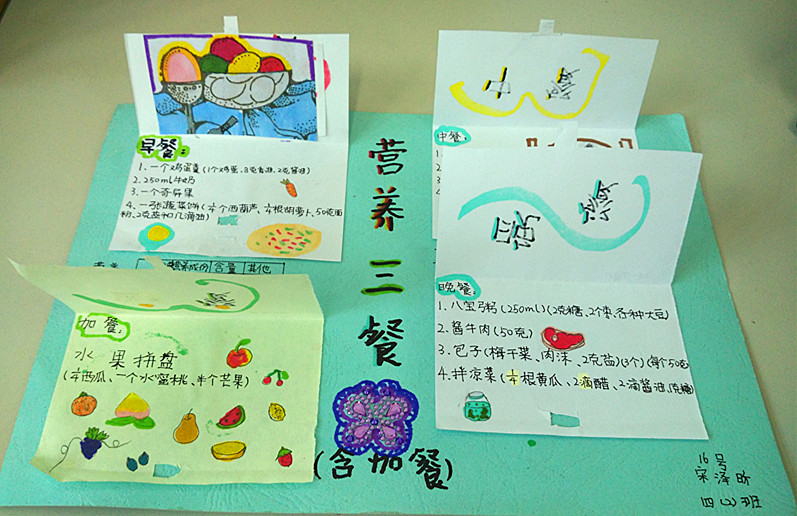 营养三餐
(含加餐)
早餐:
1、一个鸡蛋羹(1个鸡蛋、3克香油、2克酱油)
2.250ml牛奶
3.一个奇异果
4、一张蔬菜饼(¼个西葫芦、¼根胡萝卜、50克面
粉、2克盐和几滴油)
含量 其他
中餐
中餐:
1、
2.
3
4
晚餐
晚餐:
1.八宝粥(250ml)(2克糖、2个枣、各种大豆)
2.酱牛肉(50克)
3.包子(梅干菜、肉沫、2克盐)(3个)(每个50克
4.拌凉菜(¼根黄瓜、2滴醋、2滴酱油、1克糖)
加餐:
水果拼盘
(¼西瓜、一个水蜜桃、半个芒果)
16号
宋泽昕
四(2)班